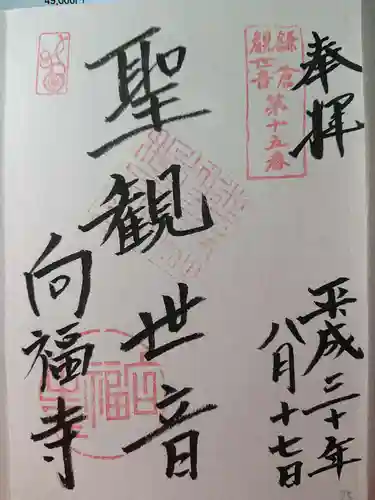 奉拝
鎌倉
観世音
第十五番
平成三十年
八月十七日
聖観世音
向福寺